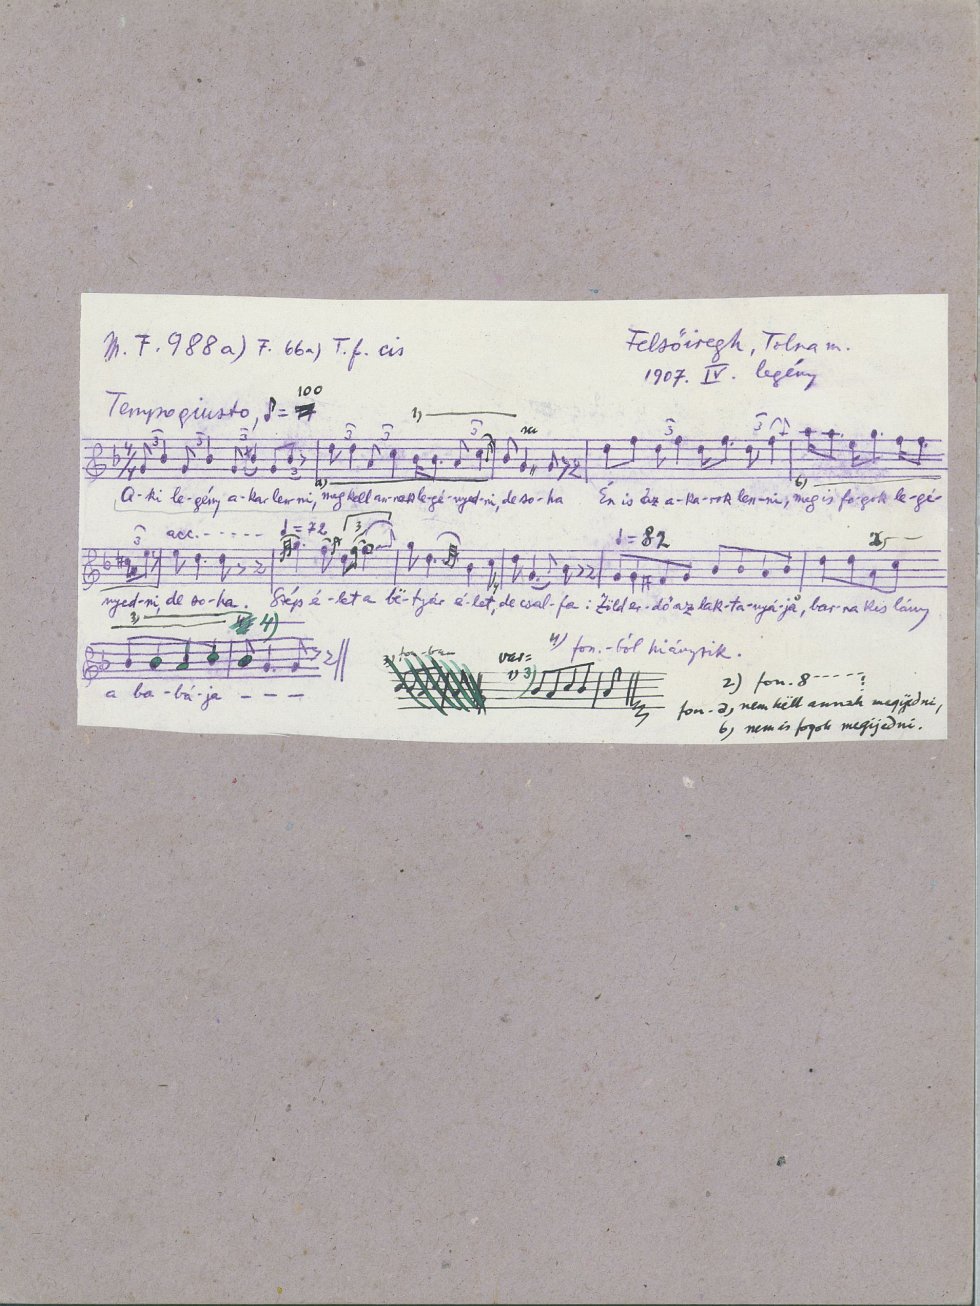 M. F. 988a) F. 66a) T. f. cis
Felsőiregh, Tolna m.
1907. IV. legény
Tempo giusto, ♪ = 100
1)
3 3 3 3 3 3 3 3 3
a) b)
A-ki le-gény a-kar len-ni, meg kell an-nak le-gé-nyed-ni, de so-ha Én is az a-ka-rok len-ni, meg is fo-gok le-gé-
3 acc. - - - - - ♩ = 72 3 ♩ = 82 2)
nyed-ni, de so-ha. Szép é-let a bë-tyár é-let, de csal-fa : Zöld er-dő az lak-ta-nyá-ja, bar-na kis lány
3) 4)
a ba-bá-ja - - -
4) fon.-ból hiányzik.
fon-ban
var:
1) 3)
2) fon. 8 - - - - - :
fon. a) nem këll annak megijedni,
b) nem is fogok megijedni.